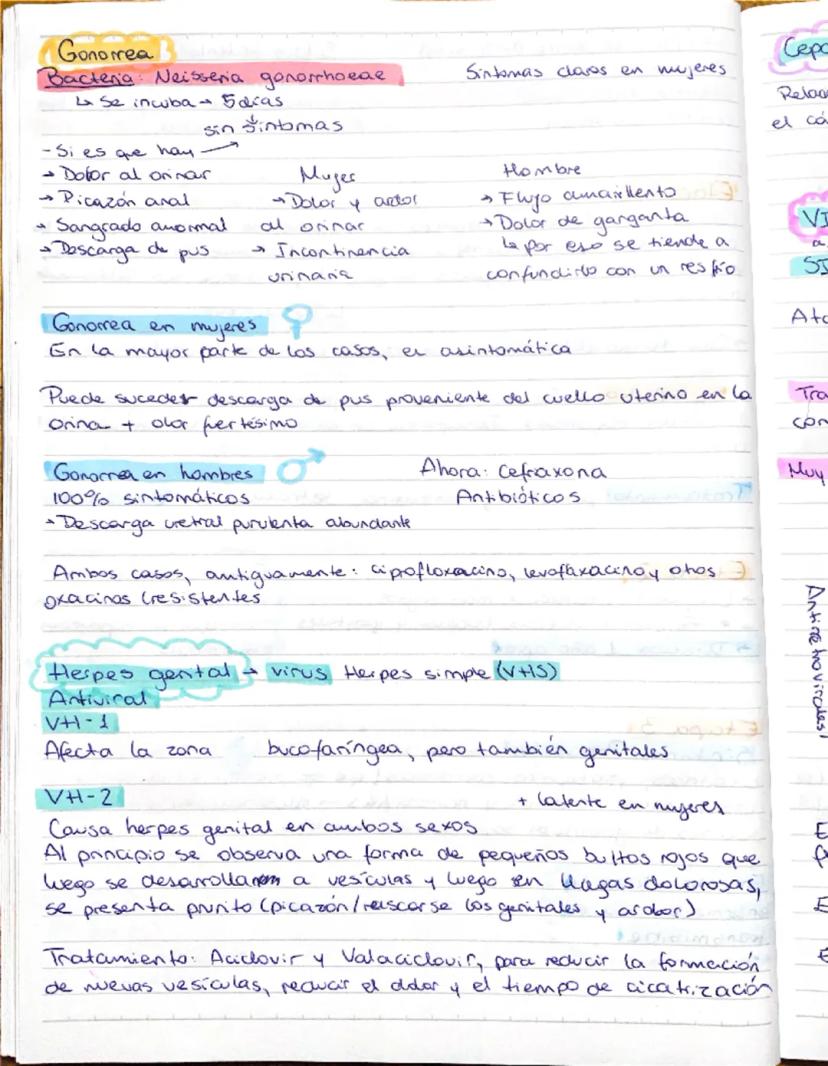 Gonorrea
Bacteria: Neisseria gonorrhoeae
Síntomas claros en mujeres
↳ Se incuba → 5 días
↓
sin síntomas
- Si es que hay →
→ Dolor al orinar
→ Picazón anal
→ Sangrado anormal
→ Descarga de pus
Mujer
→ Dolor y ardor
al orinar
→ Incontinencia
urinaria
Hombre
→ Flujo amarillento
→ Dolor de garganta
↳ por eso se tiende a
confundirlo con un resfrío
Gonorrea en mujeres ♀
En la mayor parte de los casos, es asintomática
Puede suceder descarga de pus proveniente del cuello uterino en la
orina + olor fuertísimo
Gonorrea en hombres ♂
100% sintomáticos
→ Descarga uretral purulenta abundante
Ahora: Cefraxona
Antibióticos
Ambos casos, antiguamente: ciprofloxacino, levofloxacino y otros
oxacinos (resistentes
Herpes genital → virus Herpes simple (VHS)
Antiviral
VH-1
Afecta la zona bucofaríngea, pero también genitales
VH-2
+ latente en mujeres
Causa herpes genital en ambos sexos
Al principio se observa una forma de pequeños bultos rojos que
luego se desarrollan a vesículas y luego en llagas dolorosas,
se presenta prurito (picazón/rascarse los genitales y ardor)
Tratamiento: Aciclovir y Valaciclovir, para reducir la formación
de nuevas vesículas, reducir el dolor y el tiempo de cicatrización
Cepa
el cá
VI
a
SI
Tra
con
Muy
Antiretrovirales